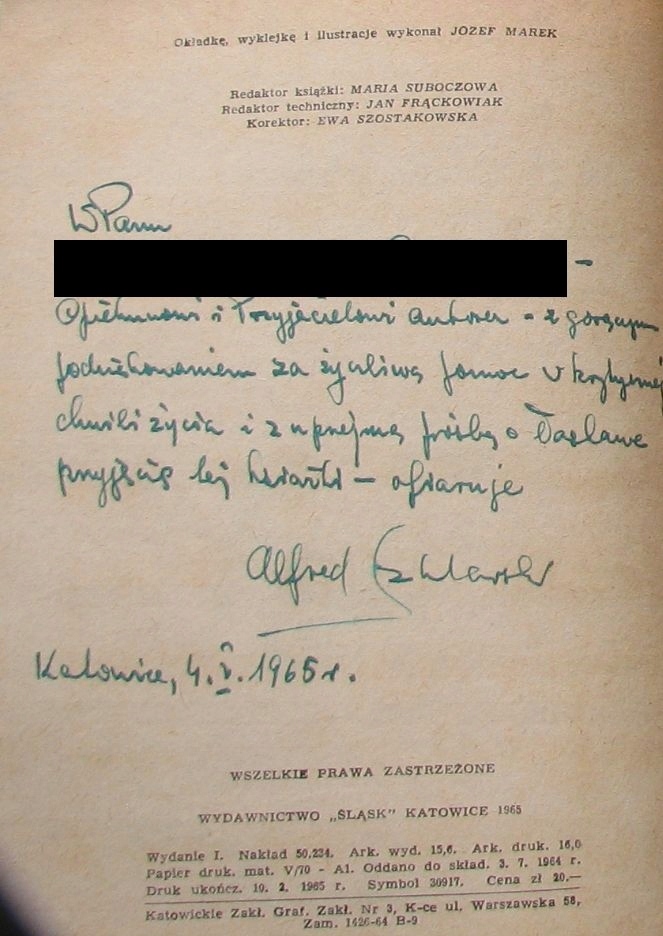 Okładkę, wyklejkę i ilustracje wykonał JÓZEF MAREK
Redaktor książki: MARIA SUBOCZOWA
Redaktor techniczny: JAN FRĄCKOWIAK
Korektor: EWA SZOSTAKOWSKA
WPanu
–
Opiekunowi i Przyjacielowi autora – z gorącym
podziękowaniem za życzliwą pomoc w krytycznej
chwili życia i z uprzejmą prośbą o łaskawe
przyjęcie tej książki – ofiaruje
Alfred Szklarski
Katowice, 4.V.1965 r.
WSZELKIE PRAWA ZASTRZEŻONE
WYDAWNICTWO „ŚLĄSK” KATOWICE 1965
Wydanie I. Nakład 50.234. Ark. wyd. 15,6. Ark. druk. 16,0
Papier druk. mat. V/70 - A1. Oddano do skład. 3. 7. 1964 r.
Druk ukończ. 19. 2. 1965 r. Symbol 30917. Cena zł 20.—
Katowickie Zakł. Graf. Zakł. Nr 3, K-ce ul. Warszawska 58,
Zam. 1426-64 B-9